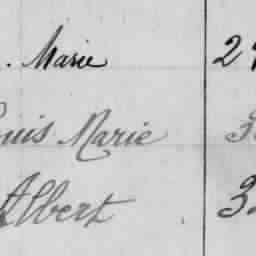 . Marie 2
ouis Marie 3
Albert 3